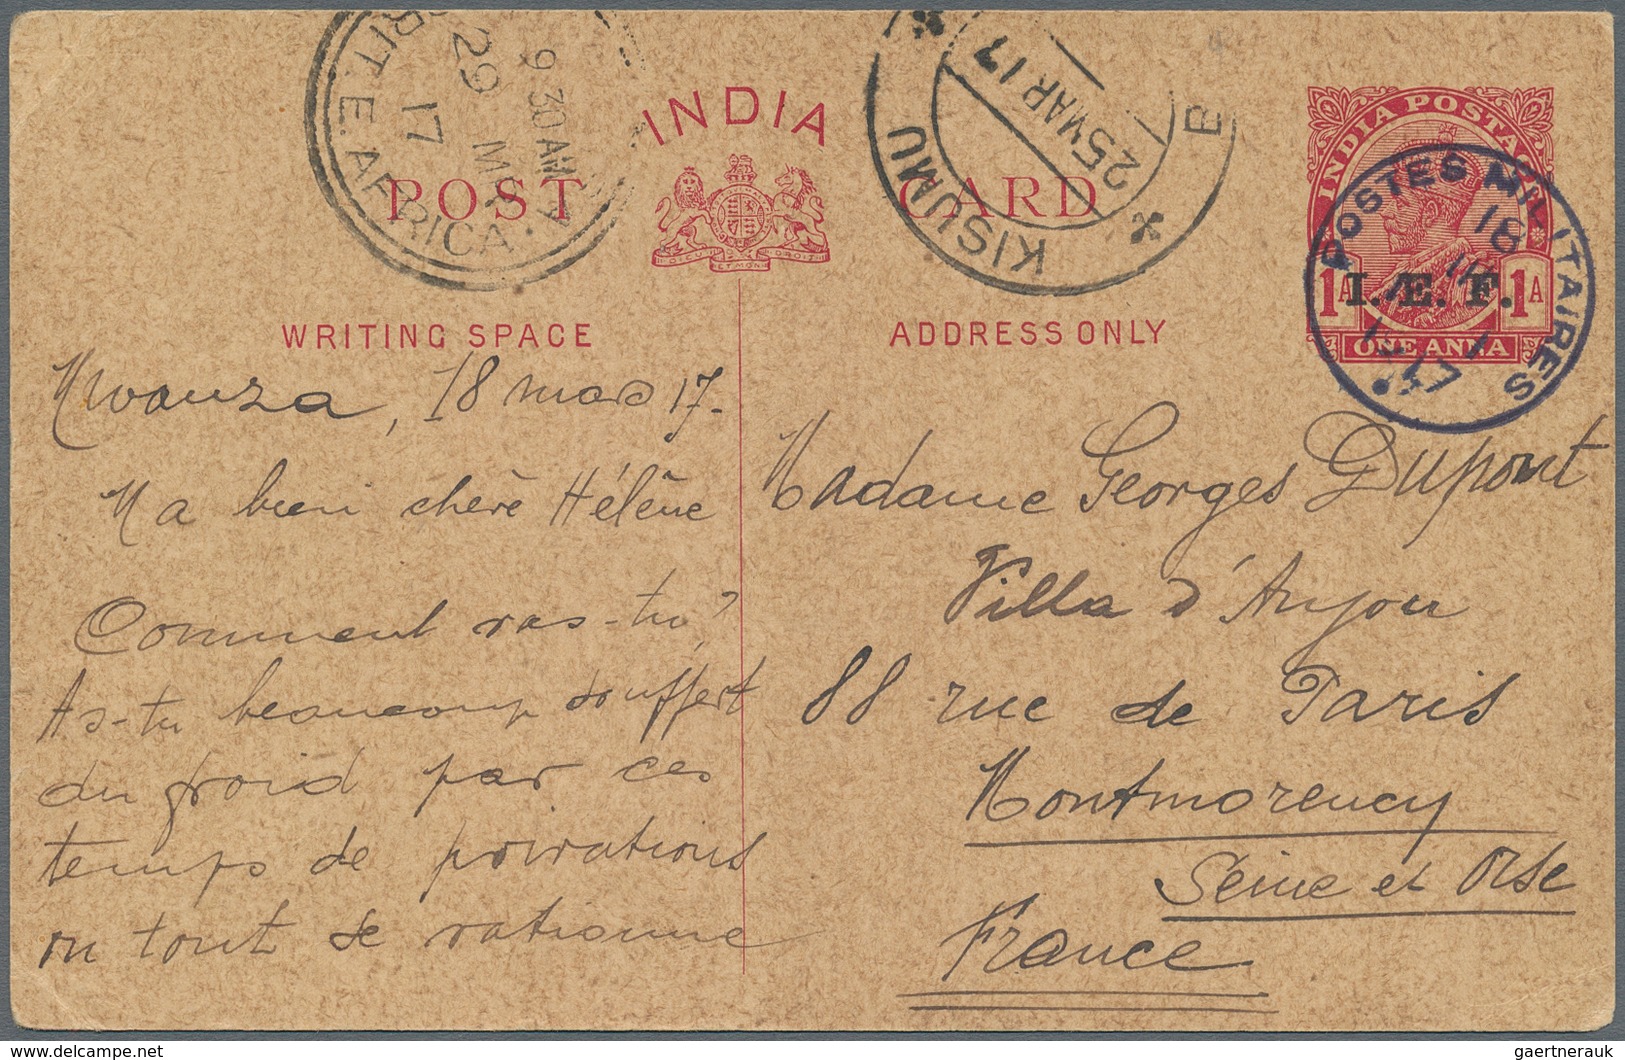 BRIT. E. AFRICA. A
9 30 AM
29 MR
17
KISUMU
25 MAR 17
B
INDIA
POST CARD
INDIA POSTA
1A I.E.F. 1A
ONE ANNA
POSTES MILITAIRES
18
WRITING SPACE
ADDRESS ONLY
Mwanza, 18 mars 17.
Ma bien chère Hélène
Comment vas-tu?
As-tu beaucoup souffert
du froid par ces
temps de privations
où tout se rationne
Madame Georges Dupont
Villa d'Anjou
88 rue de Paris
Montmorency
Seine et Oise
France
gaertnerauk